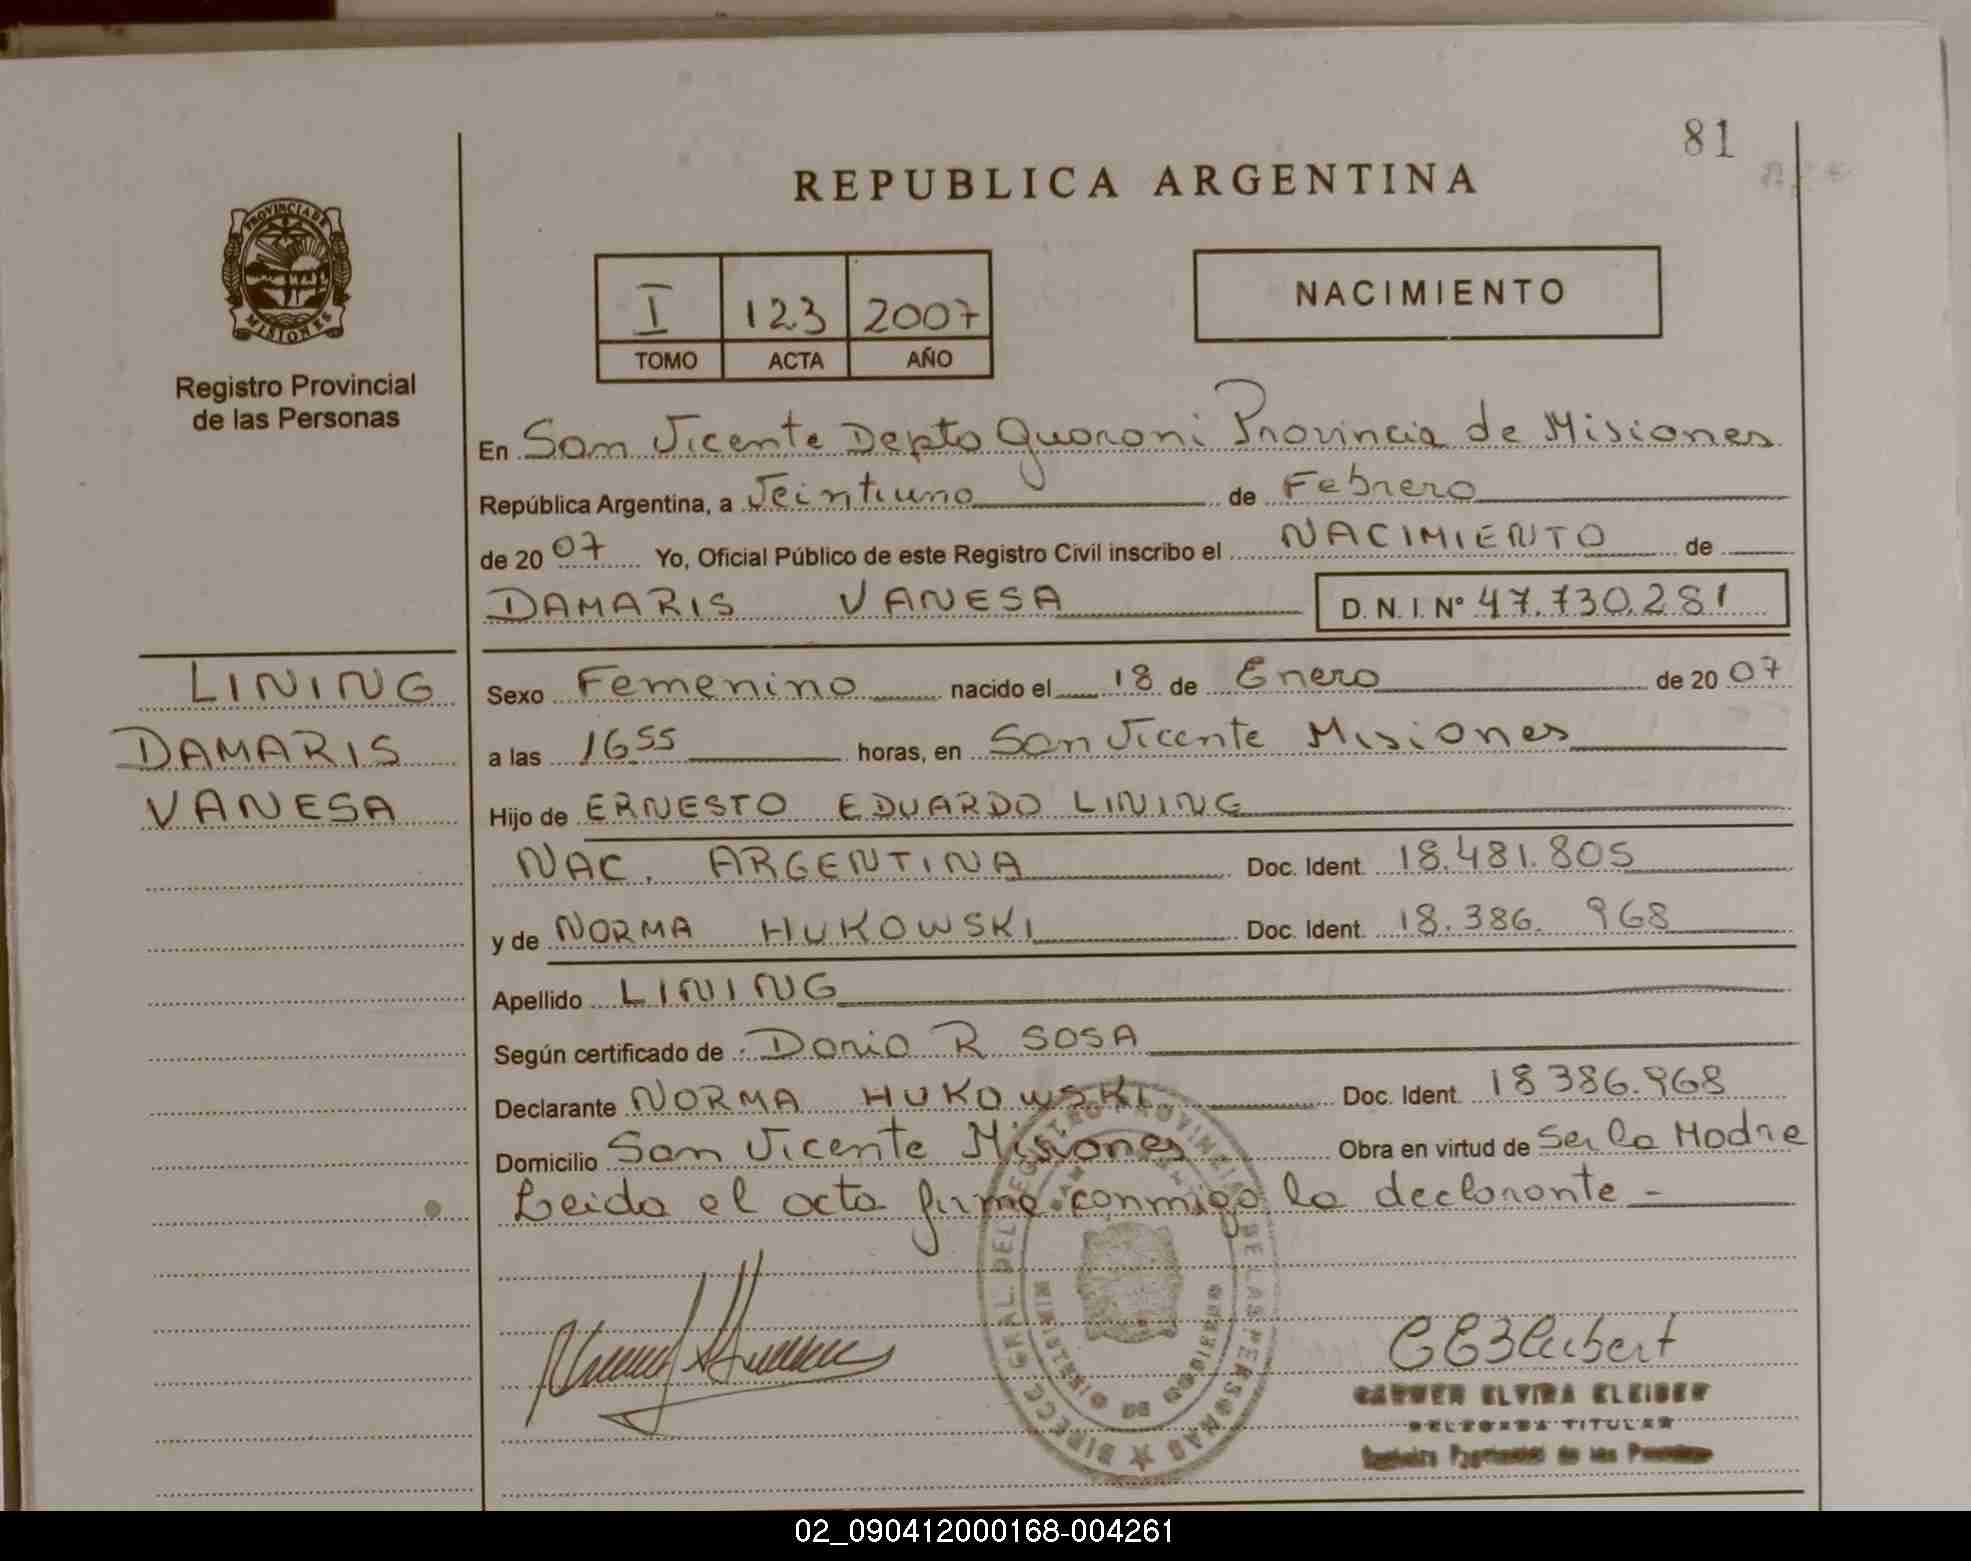 81
REPUBLICA ARGENTINA
PROVINCIA DE
MISIONES
Registro Provincial
de las Personas
I 123 2007
TOMO ACTA AÑO
NACIMIENTO
En San Vicente Depto Guarani Provincia de Misiones
República Argentina, a Veintiuno de Febrero
de 20 07 Yo, Oficial Público de este Registro Civil inscribo el NACIMIENTO de
DAMARIS VANESA D. N. I. Nº 47.730.281
LINING
DAMARIS
VANESA
Sexo Femenino nacido el 18 de Enero de 20 07
a las 1655 horas, en San Vicente Misiones
Hijo de ERNESTO EDUARDO LINING
NAC. ARGENTINA Doc. Ident. 18.481.805
y de NORMA HUKOWSKI Doc. Ident. 18.386.968
Apellido LINING
Según certificado de Dario R SOSA
Declarante NORMA HUKOWSKI Doc. Ident. 18386.968
Domicilio San Vicente Misiones Obra en virtud de Ser la Madre
Leida el acta firma conmigo la declarante -
DIRECC. GRAL. DEL REGISTRO PROVINCIAL DE LAS PERSONAS
CARMEN ELVIRA KLEIBER
DELEGADA TITULAR
02_090412000168-004261